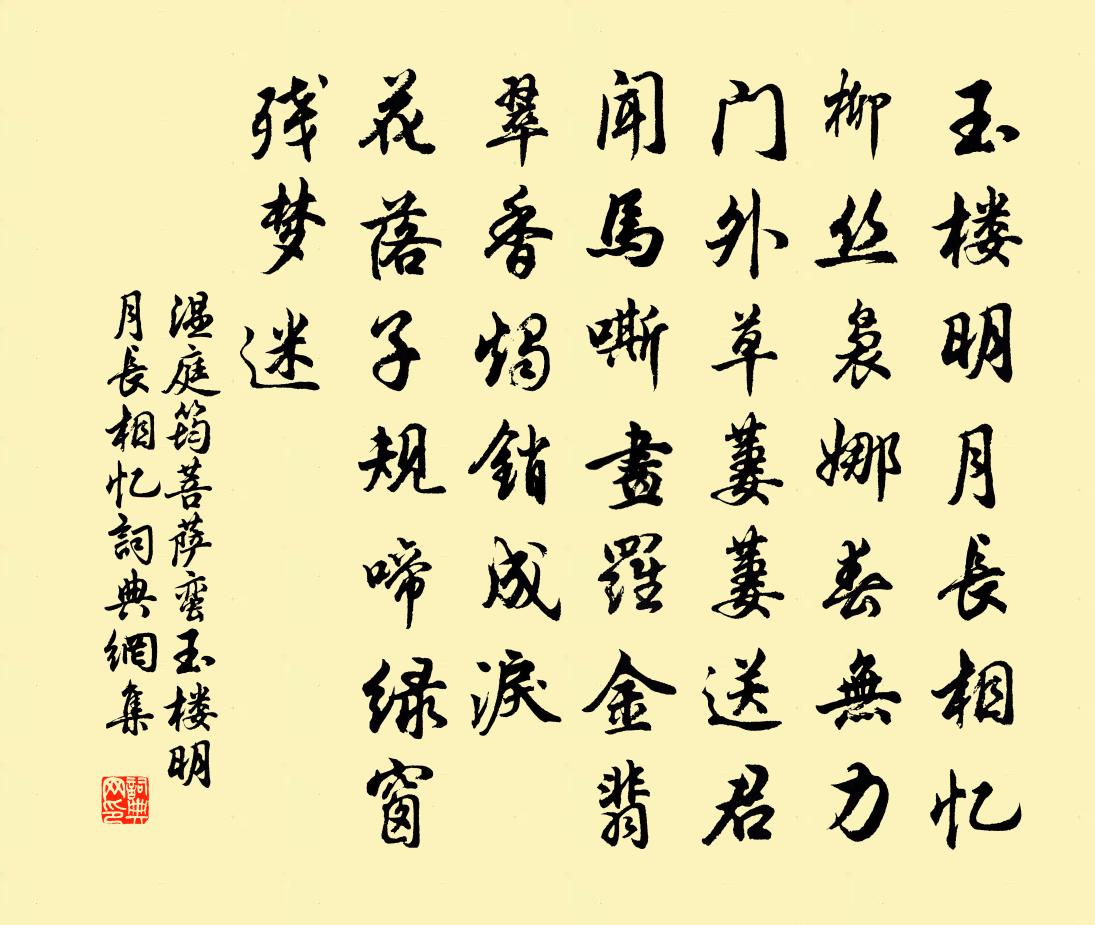 玉楼明月長相忆
柳丝袅娜春無力
门外草萋萋送君
闻馬嘶畫羅金翡
翠香燭銷成淚
花落子规啼绿窗
残梦迷
温庭筠菩萨蛮玉楼明
月長相忆詞典網集
詞典
网印